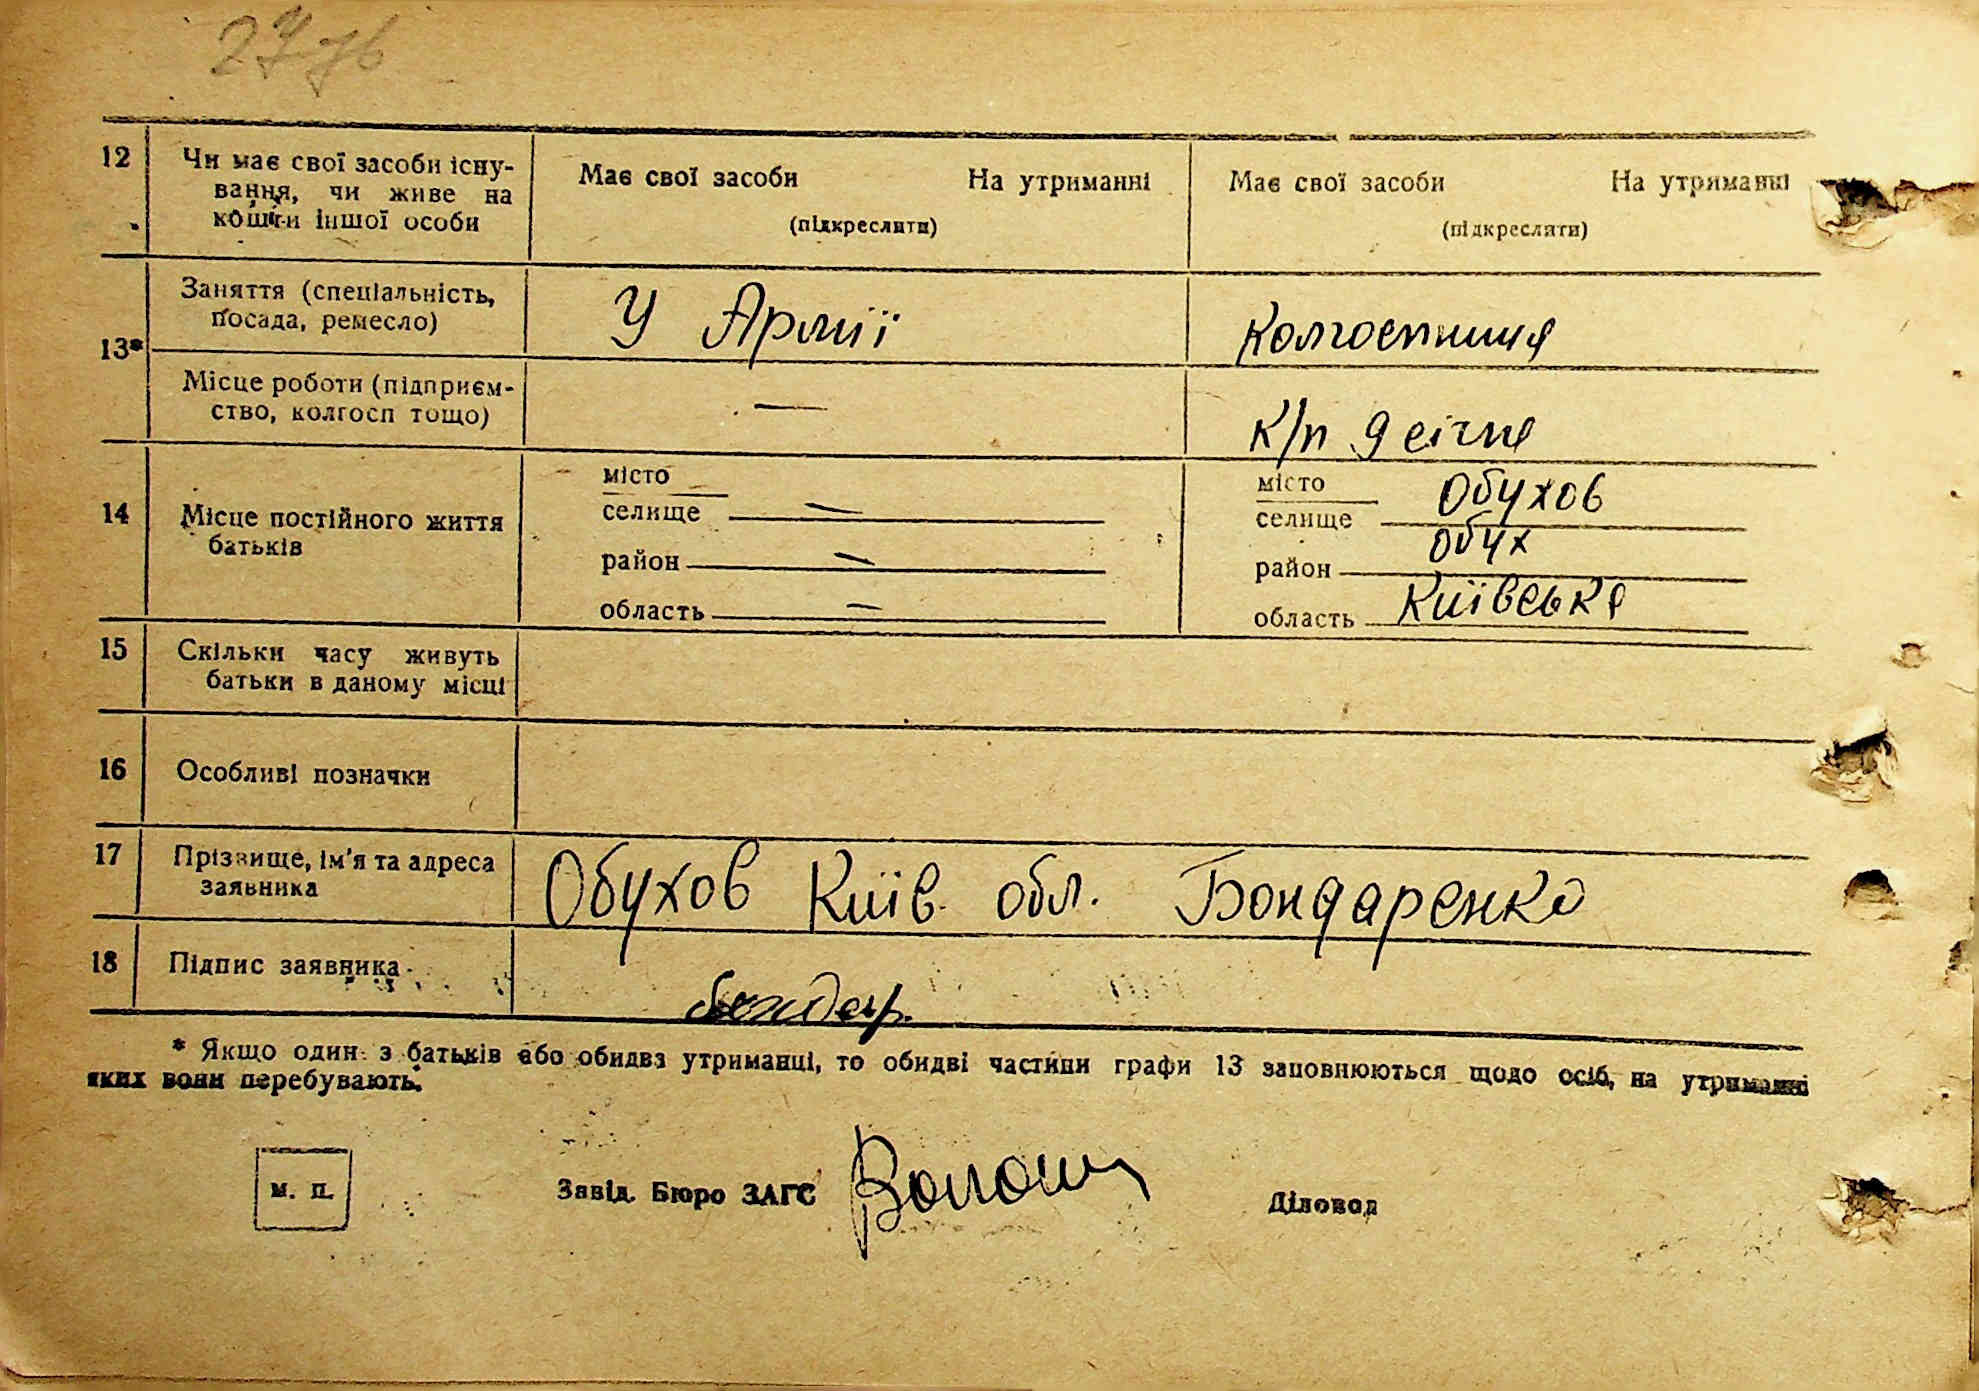 27 зв
12 Чи має свої засоби існу-
вання, чи живе на
кошти іншої особи
Має свої засоби На утриманні
(підкреслити)
Має свої засоби На утриманні
(підкреслити)
13*
Заняття (спеціальність,
посада, ремесло)
У Армії
Колгоспниця
Місце роботи (підприєм-
ство, колгосп тощо)
—
к/п 9 січня
14 Місце постійного життя
батьків
місто
селище —
район —
область —
місто
селище Обухов
район Обух
область Київська
15 Скільки часу живуть
батьки в даному місці
16 Особливі позначки
17 Прізвище, ім'я та адреса
заявника
Обухов Київ. обл. Бондаренко
18 Підпис заявника
Бондар.
* Якщо один з батьків або обидва утриманці, то обидві частини графи 13 заповнюються щодо осіб, на утриманні
яких вони перебувають.
М. П.
Завід. Бюро ЗАГС
Діловод